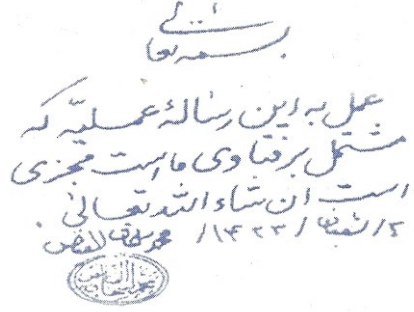 بسمه تعالی
عمل به این رسالهٔ عملیّه که
مشتمل بر فتاوی ما است مجزی
است ان شاء الله تعالی.
۲/ شعبان /۱۴۲۳/ محمد اسحاق الفیاض